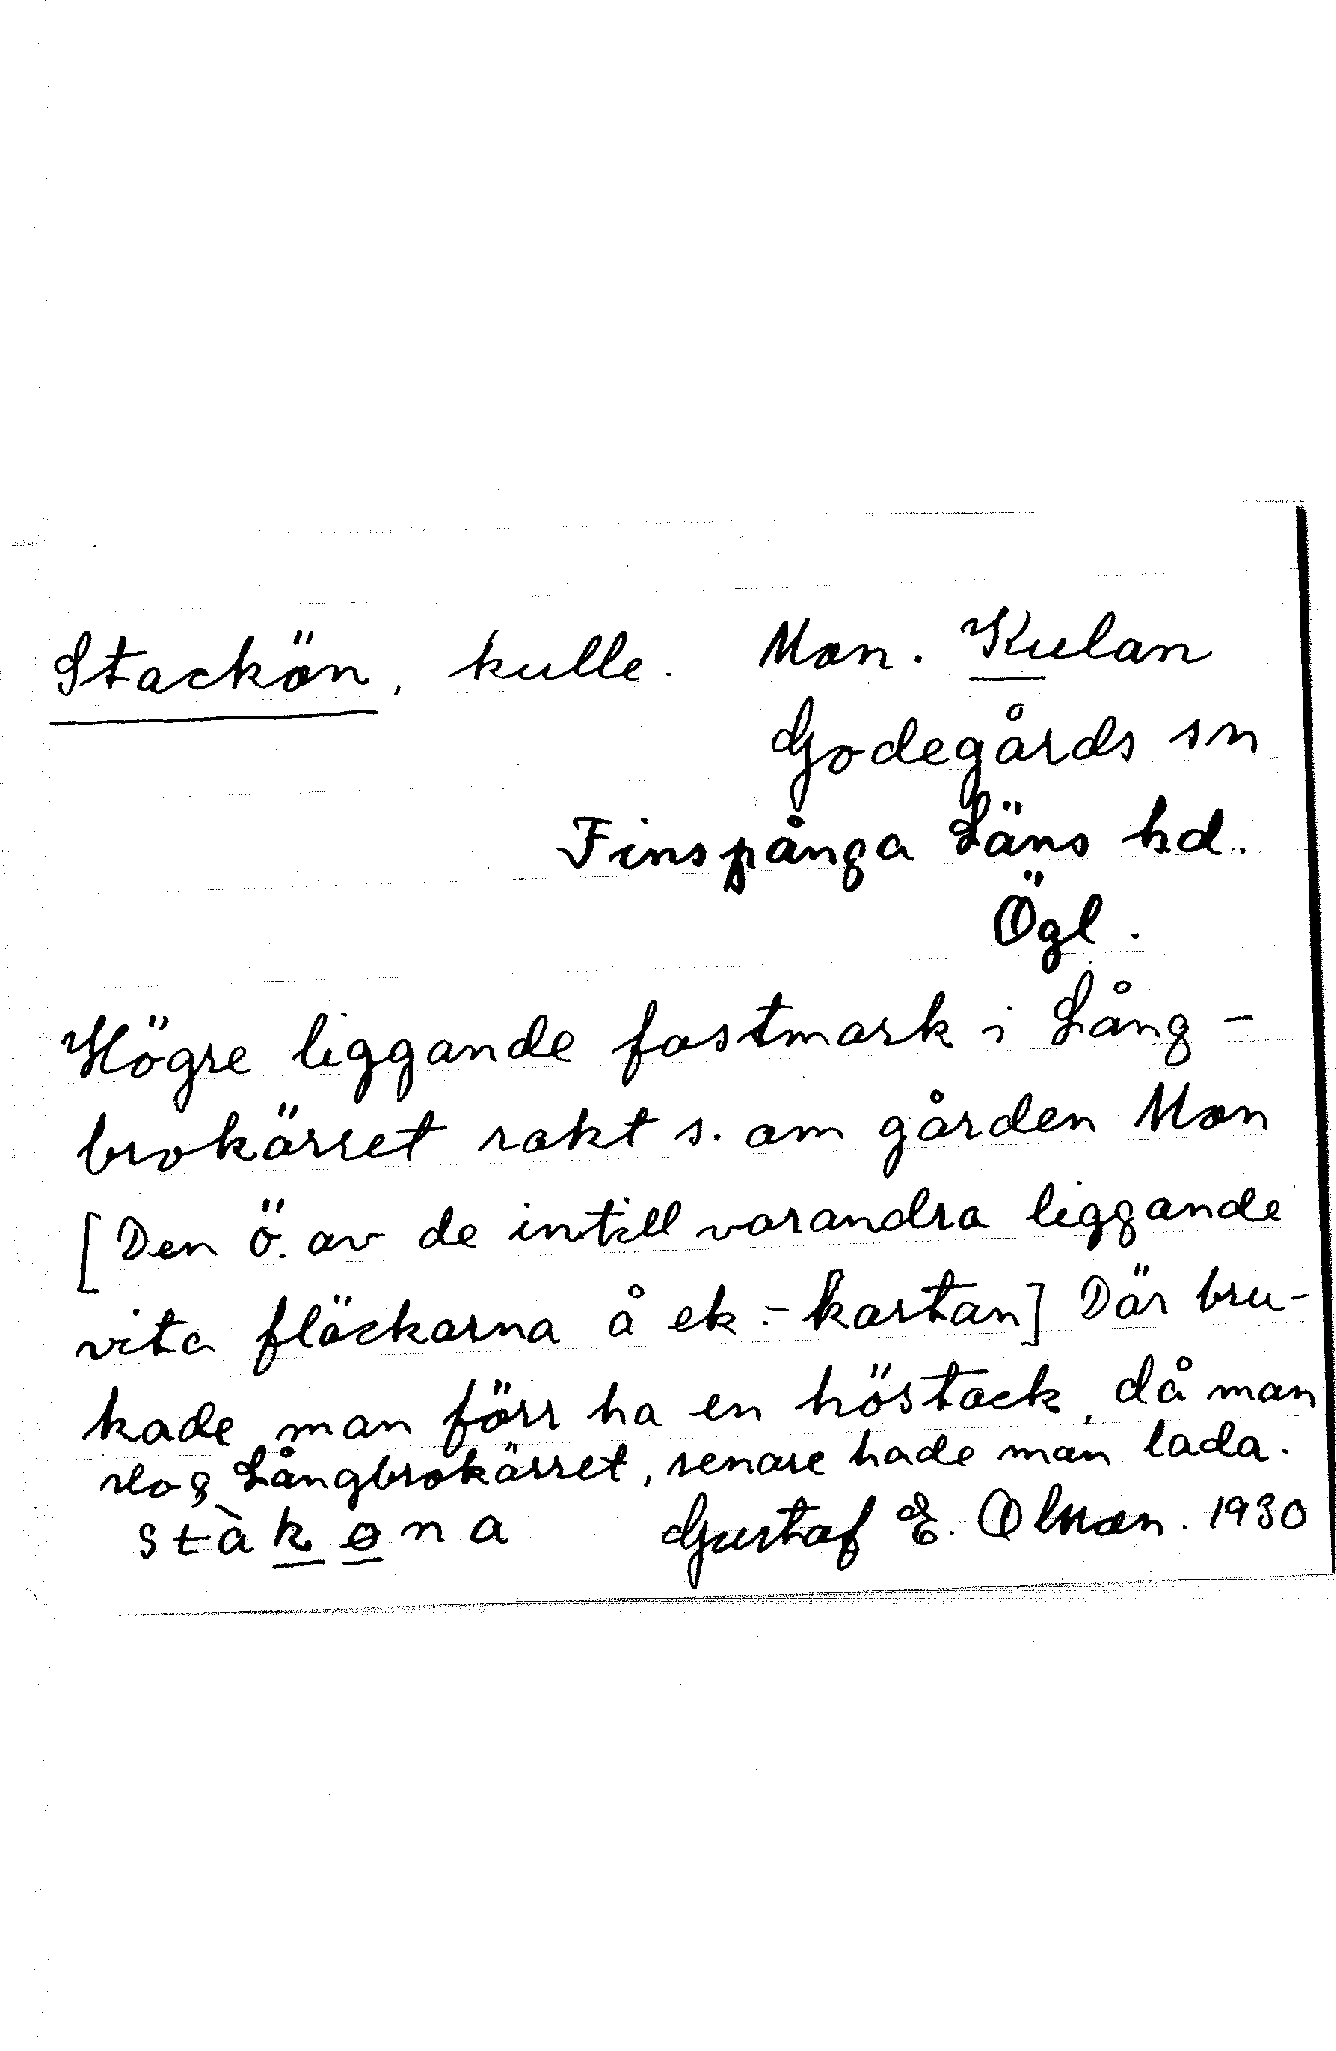 Stackön, kulle. Mon. Kulan
Godegårds sn
Finspånga Läns hd.
Ögl.
Högre liggande fastmark i Lång-
brokärret rakt s. om gården Mon
[Den ö. av de intill varandra liggande
vita fläckarna å ek.-kartan] Där bru-
kade man förr ha en höstack, då man
slog Långbrokärret, senare hade man lada.
stàkøna Gustaf E. Olman. 1930